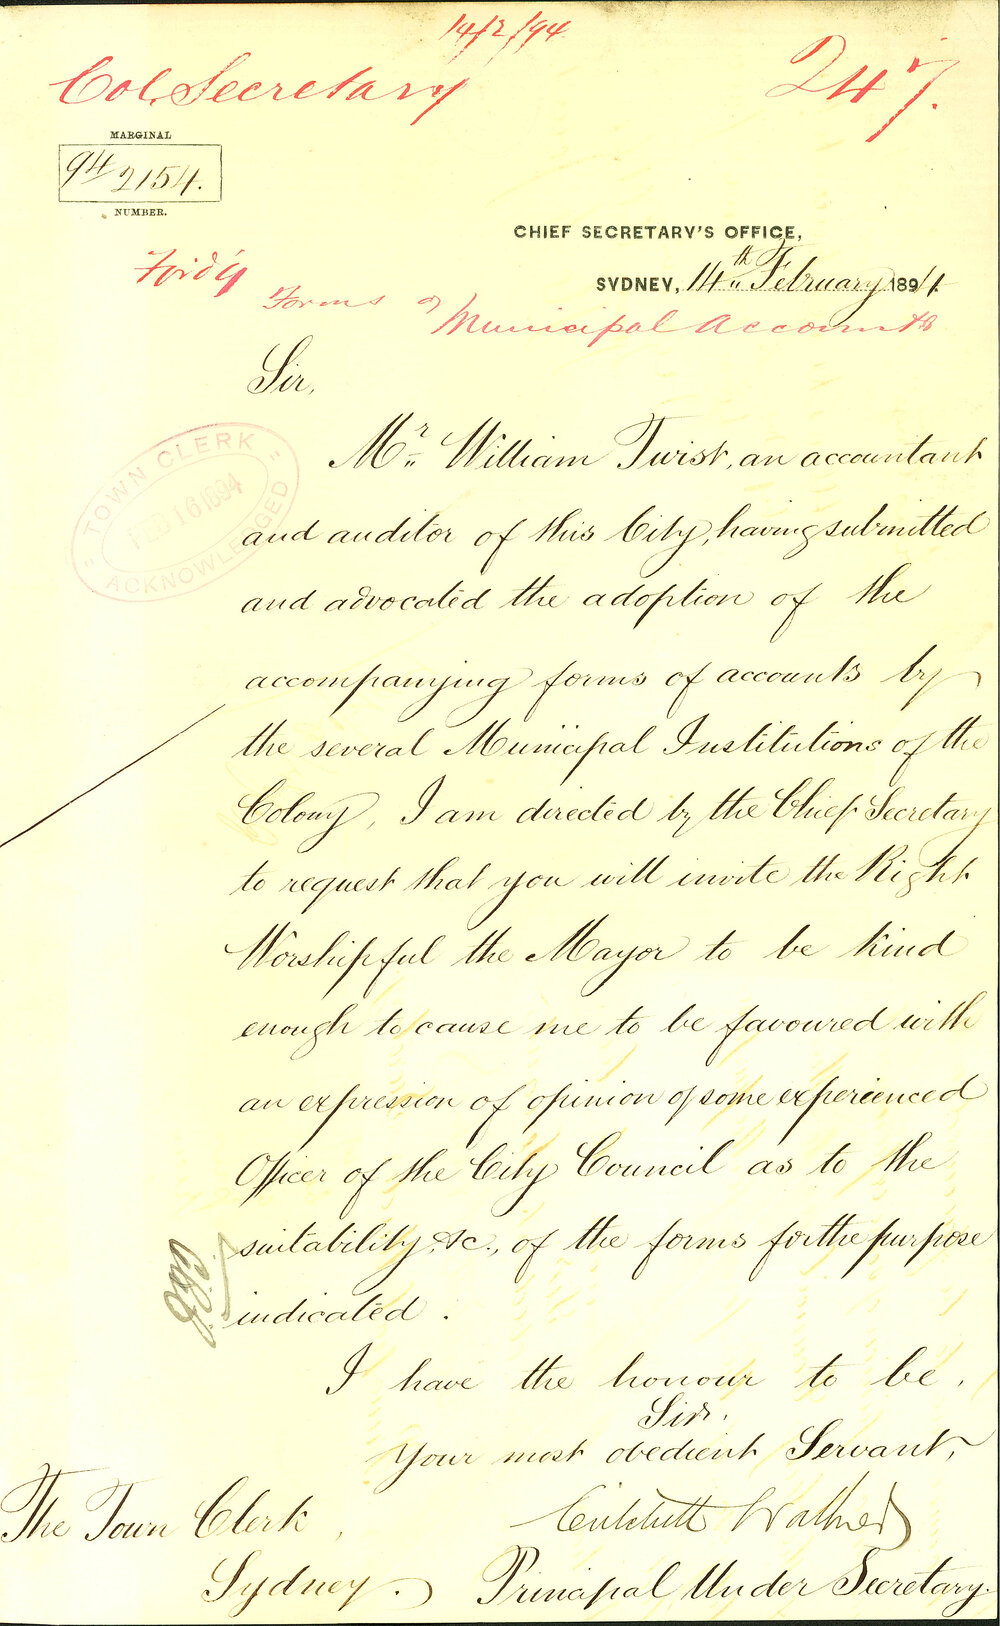 14/2/94
Col. Secretary
247.
MARGINAL
94 2154.
NUMBER.
CHIEF SECRETARY'S OFFICE,
SYDNEY, 14th February 1894.
Forms of
Municipal Accounts
Sir,
TOWN CLERK
FEB 16 1894
ACKNOWLEDGED
Mr. William Twist, an accountant
and auditor of this City, having submitted
and advocated the adoption of the
accompanying forms of accounts by
the several Municipal Institutions of the
Colony, I am directed by the Chief Secretary
to request that you will invite the Right
Worshipful the Mayor to be kind
enough to cause me to be favoured with
an expression of opinion of some experienced
Officer of the City Council as to the
suitability, &c., of the forms for the purpose
indicated.
I have the honour to be,
Sir,
Your most obedient Servant,
Critchett Walker
Principal Under Secretary.
The Town Clerk,
Sydney.